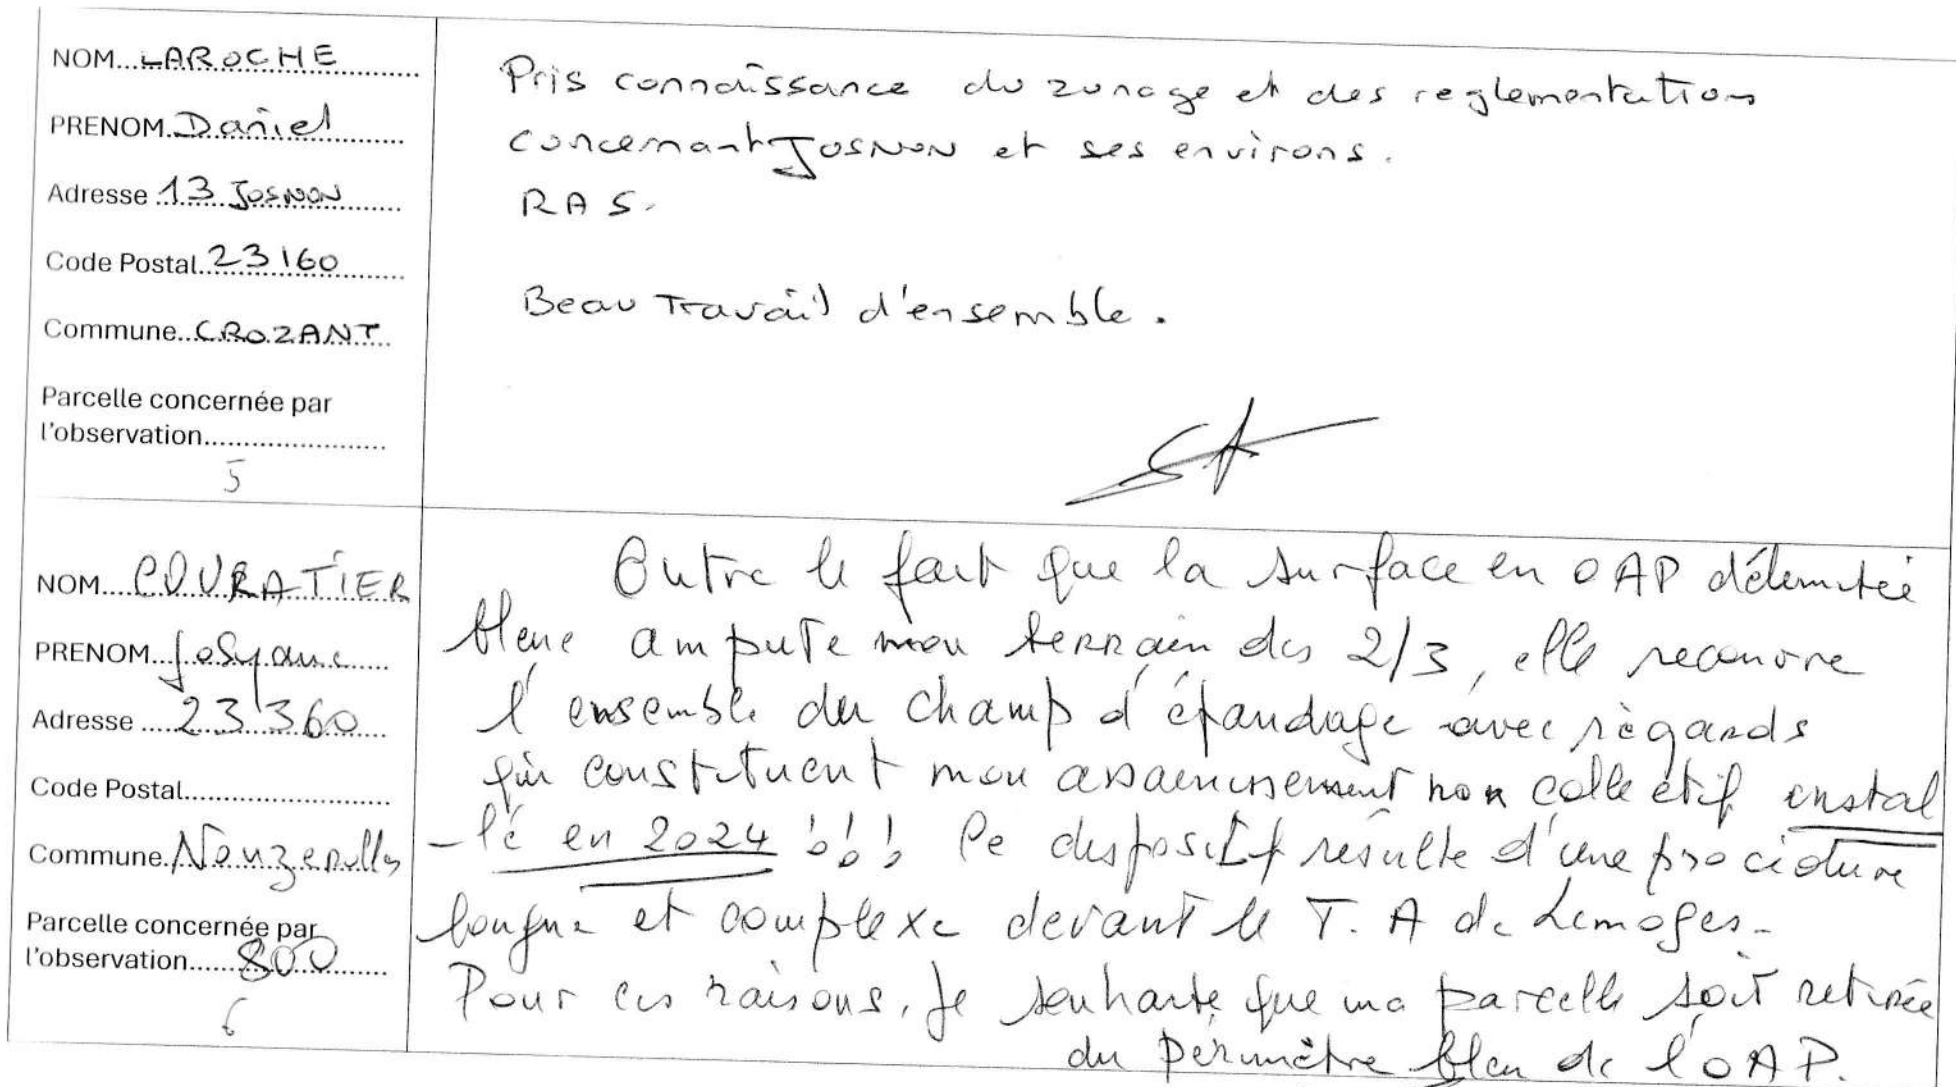 NOM...LAROCHE
PRENOM.Daniel
Adresse 13 JOSNON
Code Postal..23160
Commune..CROZANT
Parcelle concernée par
l'observation.....................
5
Pris connaissance du zonage et des reglementations
concernant JOSNON et ses environs.
RAS.
Beau Travail d'ensemble.
NOM....COURATIER
PRENOM...Josyane
Adresse ....23360
Code Postal.......................
Commune.Nouzerolles
Parcelle concernée par
l'observation.....800
6
Outre le fait que la surface en OAP délimitée
bleue ampute mon terrain des 2/3, elle recouvre
l'ensemble du champ d'épandage avec regards
qui constituent mon assainissement non collectif instal
-lé en 2024 !!! Ce dispositif résulte d'une procédure
longue et complexe devant le T.A de Limoges.
Pour ces raisons, je souhaite que ma parcelle soit retirée
du périmètre bleu de l'OAP.